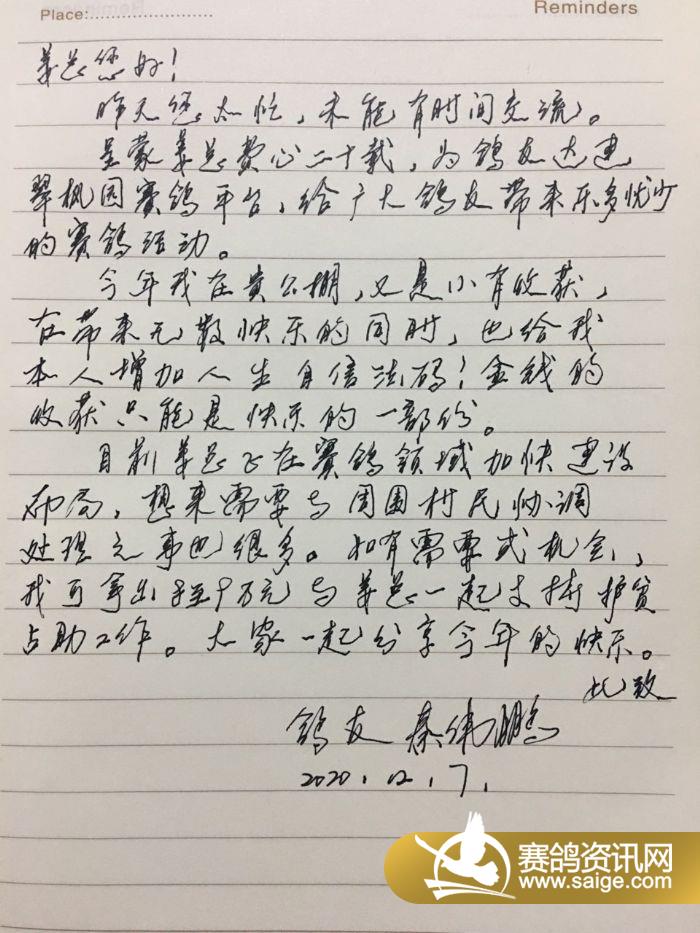 Place:
Reminders
姜总您好！
昨天您太忙，未能有时间交流。
呈蒙姜总费心二十载，为鸽友达建
翠枫园赛鸽平台，给广大鸽友带来乐多忧少
的赛鸽活动。
今年我在贵公棚，又是小有收获，
在带来无数快乐的同时，也给我
本人增加人生自信法码！金钱的
收获只能是快乐的一部份。
目前姜总飞在赛鸽领域加快建设
布局，想来需要与周围村民协调
处理之事也很多。如有需要或机会，
我可拿出 9万元与姜总一起支持护贫
占助工作。大家一起分享今年的快乐。
此致
鸽友 秦伟鹏
2020.12.7.
赛鸽资讯网
www.saige.com